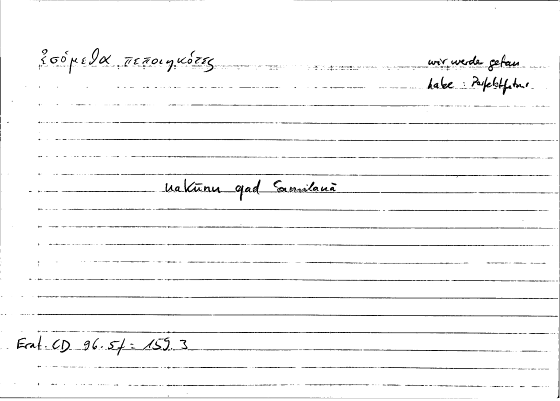 ἐσόμεθα πεποιηκότες
wir werde getan
habe : Perfektfutur.
nakūnu qad ʿamilanā
Erat. CD 96.5f = 159.3